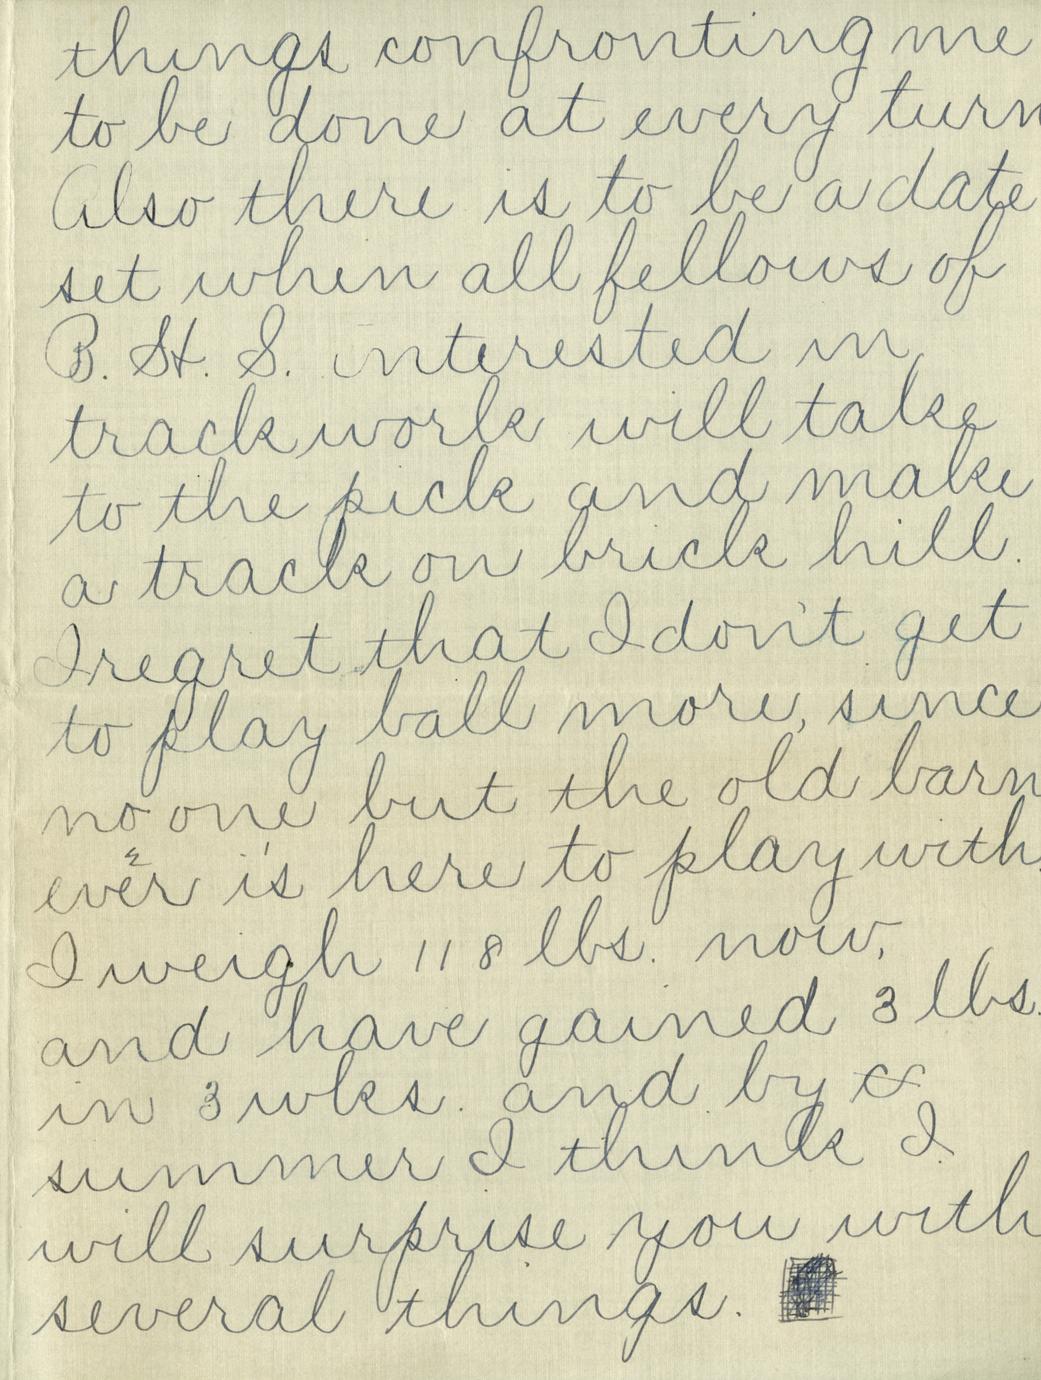 things confronting me
to be done at every turn
Also there is to be a date
set when all fellows of
B. H. S. interested in
track work will take
to the pick and make
a track on brick hill.
I regret that I don't get
to play ball more, since
no one but the old barn
ever is here to play with.
I weigh 118 lbs. now,
and have gained 3 lbs.
in 3 wks. and by
summer I think I
will surprise you with
several things.